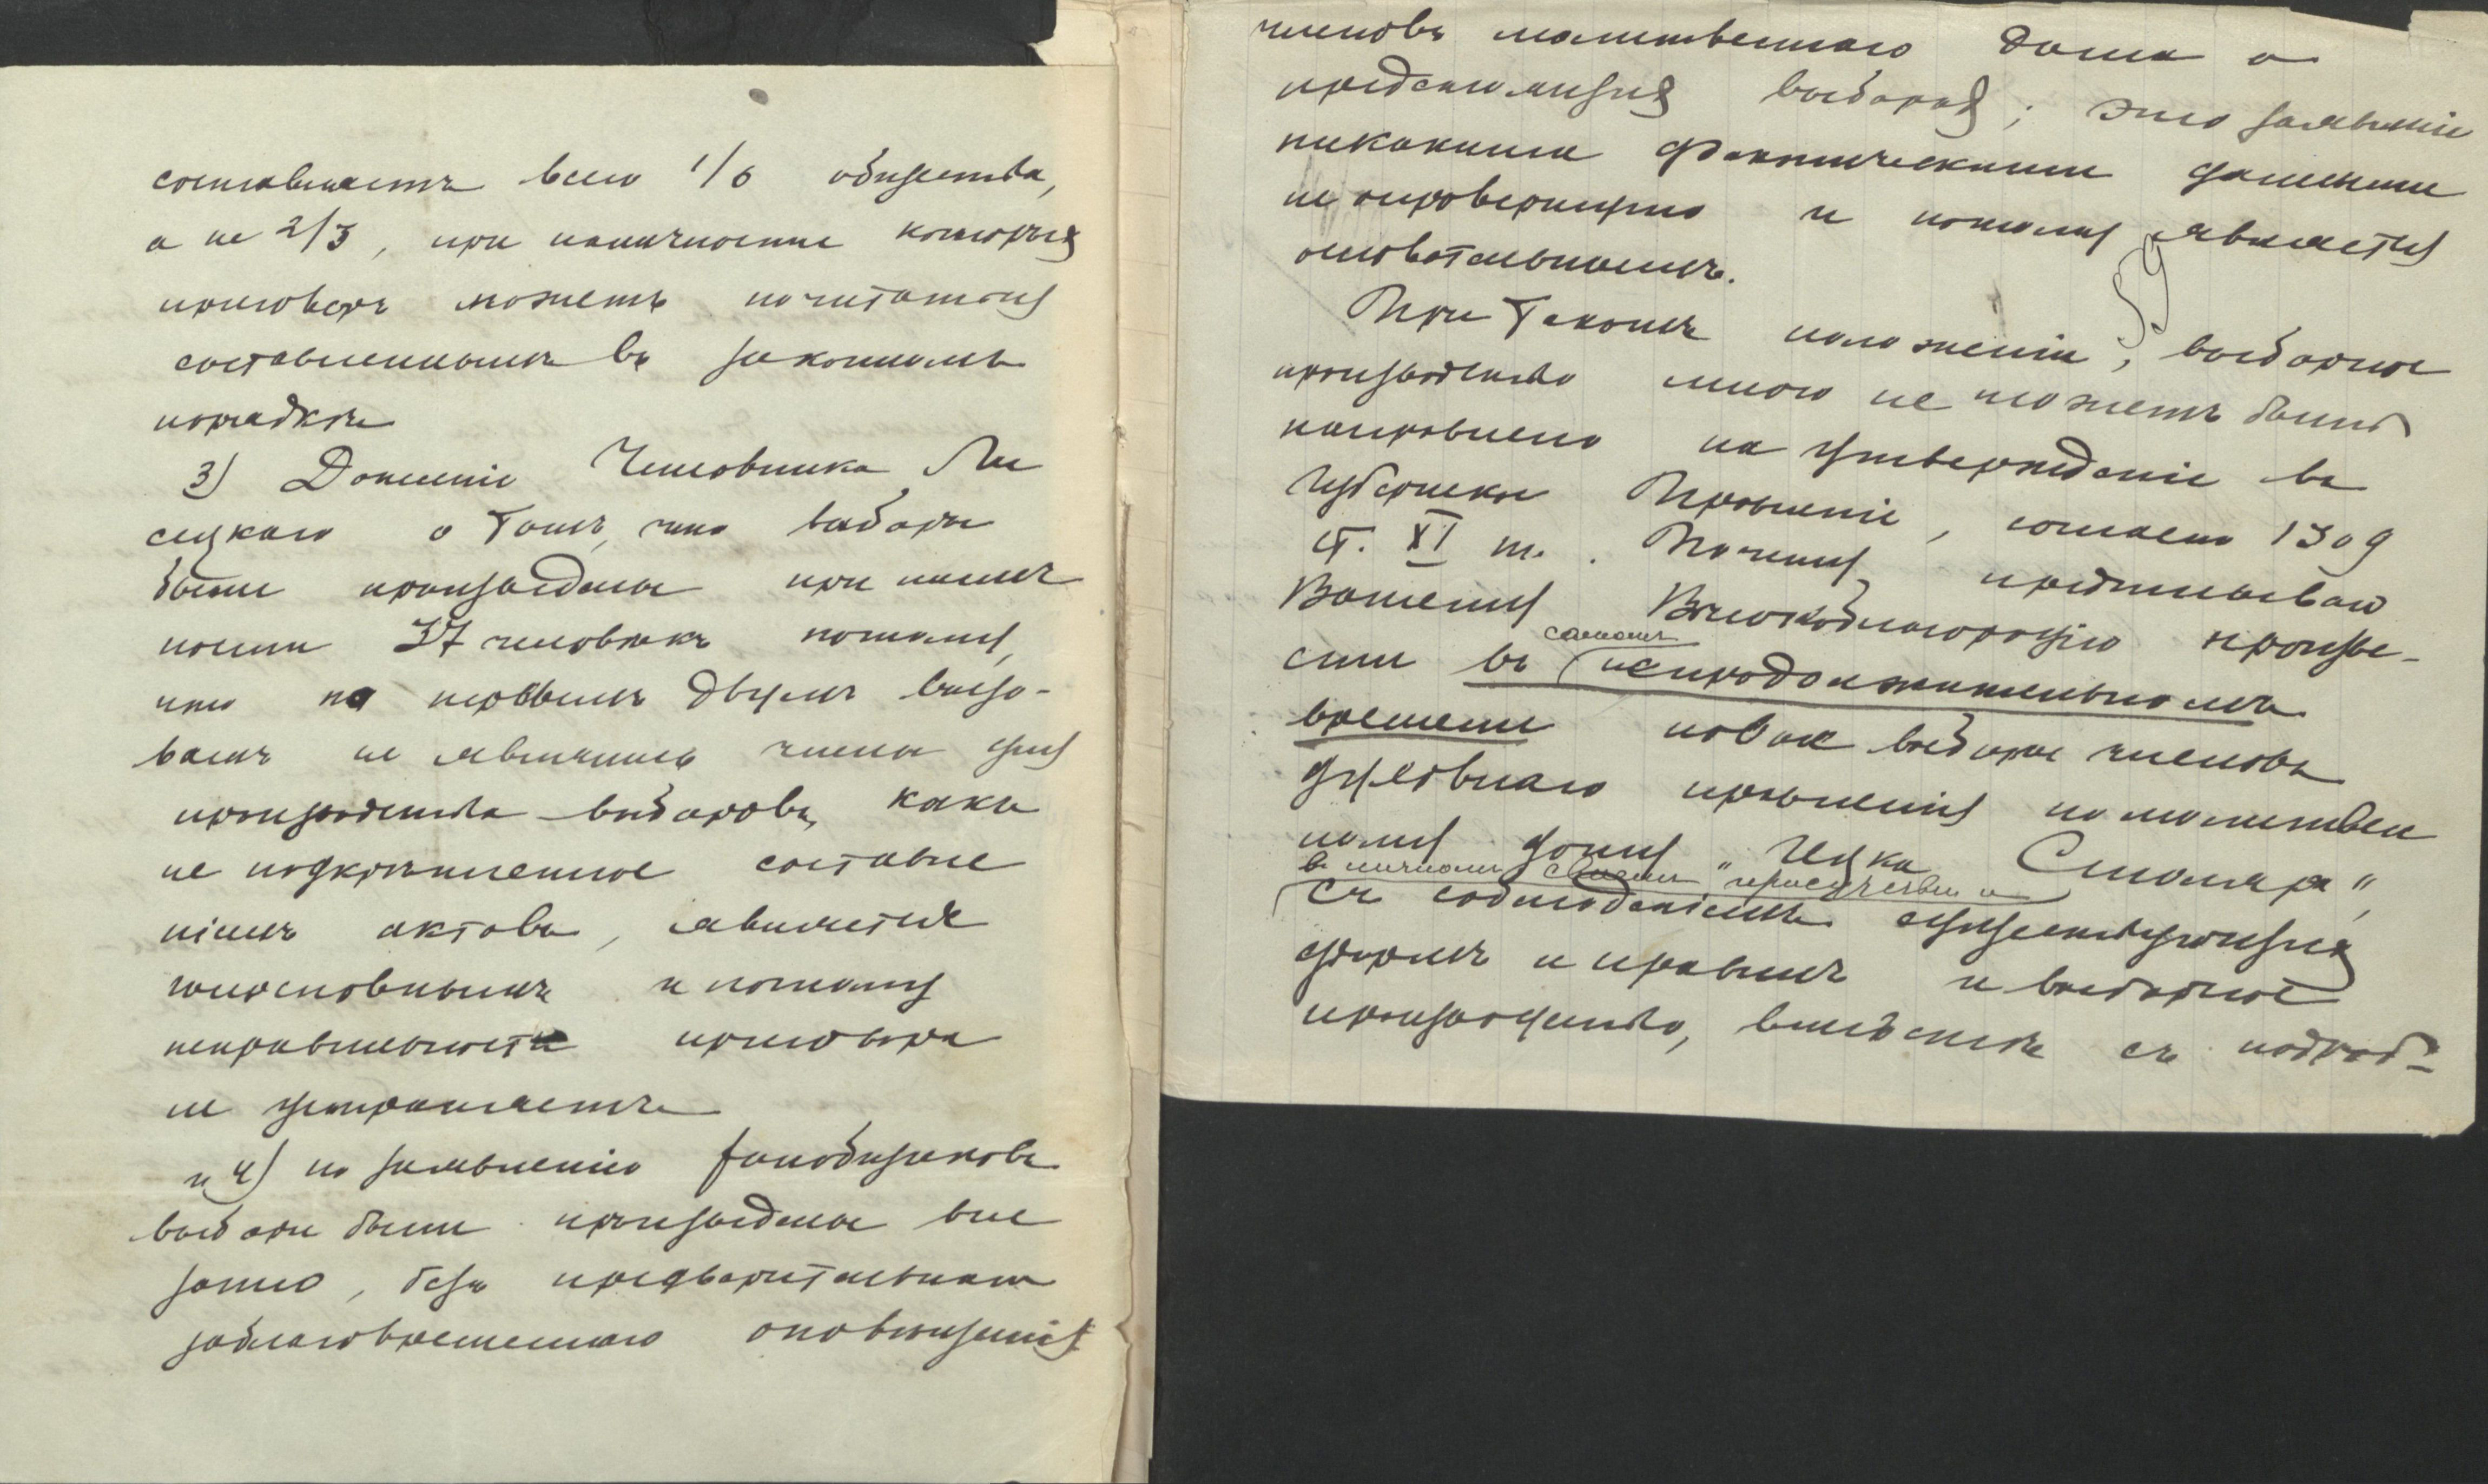 составляетъ всего 1/6 общества,
а не 2/3, при наличности которыхъ
приговоръ можетъ почитаться
составленнымъ въ законномъ
порядкѣ
3) Донесеніе Чиновника Ли
сецкаго о томъ, что выборы
были произведены при налич
ности 37 человѣкъ потому,
что по первымъ двумъ вызо-
вамъ не явились члены для
производства выборовъ, какъ
не подкрѣпленное составле
ніемъ актовъ, является
голословнымъ и потому
неправильности приговора
не устраняетъ
и 4) по заявленію жалобщиковъ
выборы были произведены вне
запно, безъ предварительнаго
заблаговременнаго оповѣщенія
членовъ молитвеннаго дома о
предстоящихъ выборахъ; это заявленіе
никакими фактическими данными
не опровергнуто и потому является
основательнымъ.
59
При такомъ положеніи, выборное
производство мною не можетъ быть
направлено на утвержденіе въ
Губернское Правленіе, согласно 1309
ст. XI т. Почему предписываю
Вашему Высокоблагородію произве-
самомъ
сти въ непродолжительномъ
времени новые выборы членовъ
духовнаго правленія по молитвен
ному дому „Ицка Столяра",
въ личномъ Вашемъ присутствіи и
съ соблюденіемъ существующихъ
формъ и правилъ и выборное
производство, вмѣстѣ съ подроб-